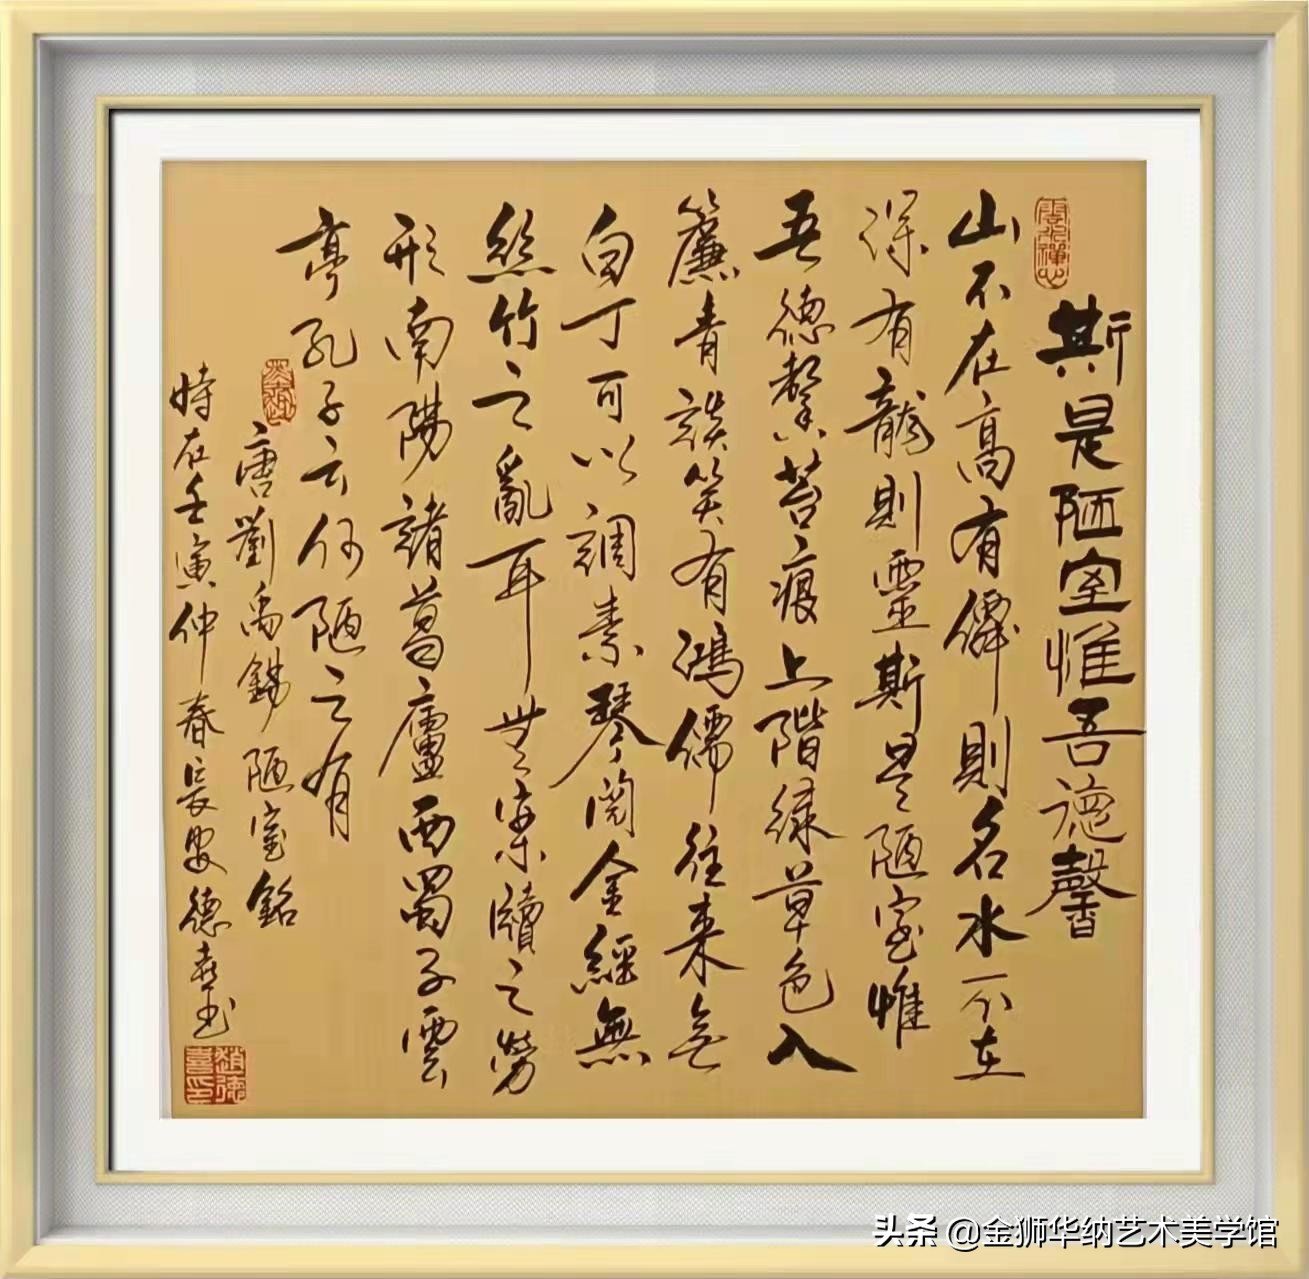 斯是陋室惟吾德馨
山不在高有僊則名水不在
深有龍則靈斯是陋室惟
吾德馨苔痕上階綠草色入
簾青談笑有鴻儒往來無
白丁可以調素琴閱金經無
絲竹之亂耳無案牘之勞
形南陽諸葛廬西蜀子雲
亭孔子云何陋之有
唐劉禹錫陋室銘
時在壬寅仲春長安德喜書
趙德喜印
头条 @金狮华纳艺术美学馆